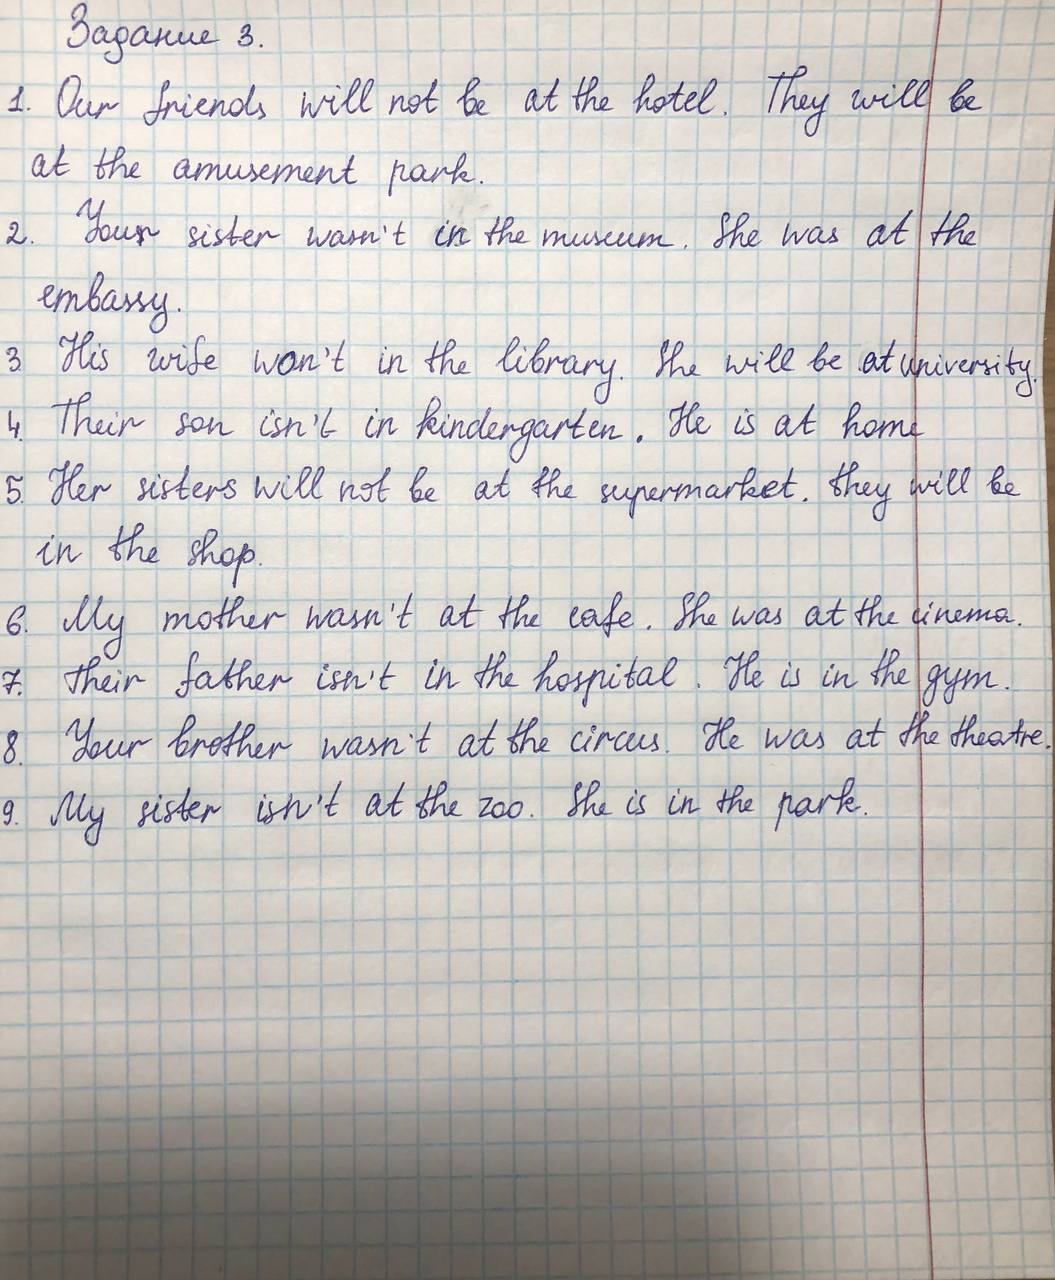 Задание 3.
1. Our friends will not be at the hotel. They will be
at the amusement park.
2. Your sister wasn't in the museum. She was at the
embassy.
3 His wife won't in the library. She will be at university.
4. Their son isn't in kindergarten. He is at home
5. Her sisters will not be at the supermarket. they will be
in the shop.
6. My mother wasn't at the cafe. She was at the cinema.
7. Their father isn't in the hospital. He is in the gym.
8. Your brother wasn't at the circus. He was at the theatre.
9. My sister isn't at the zoo. She is in the park.